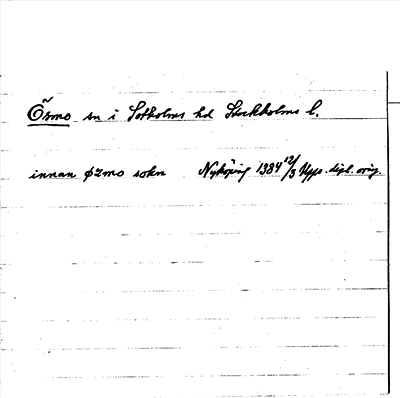 Ösmo sn i Sotholms hd Stockholms l.
innan øzmo sokn Nyköping 1384 12/3 Upps. dipl. orig.